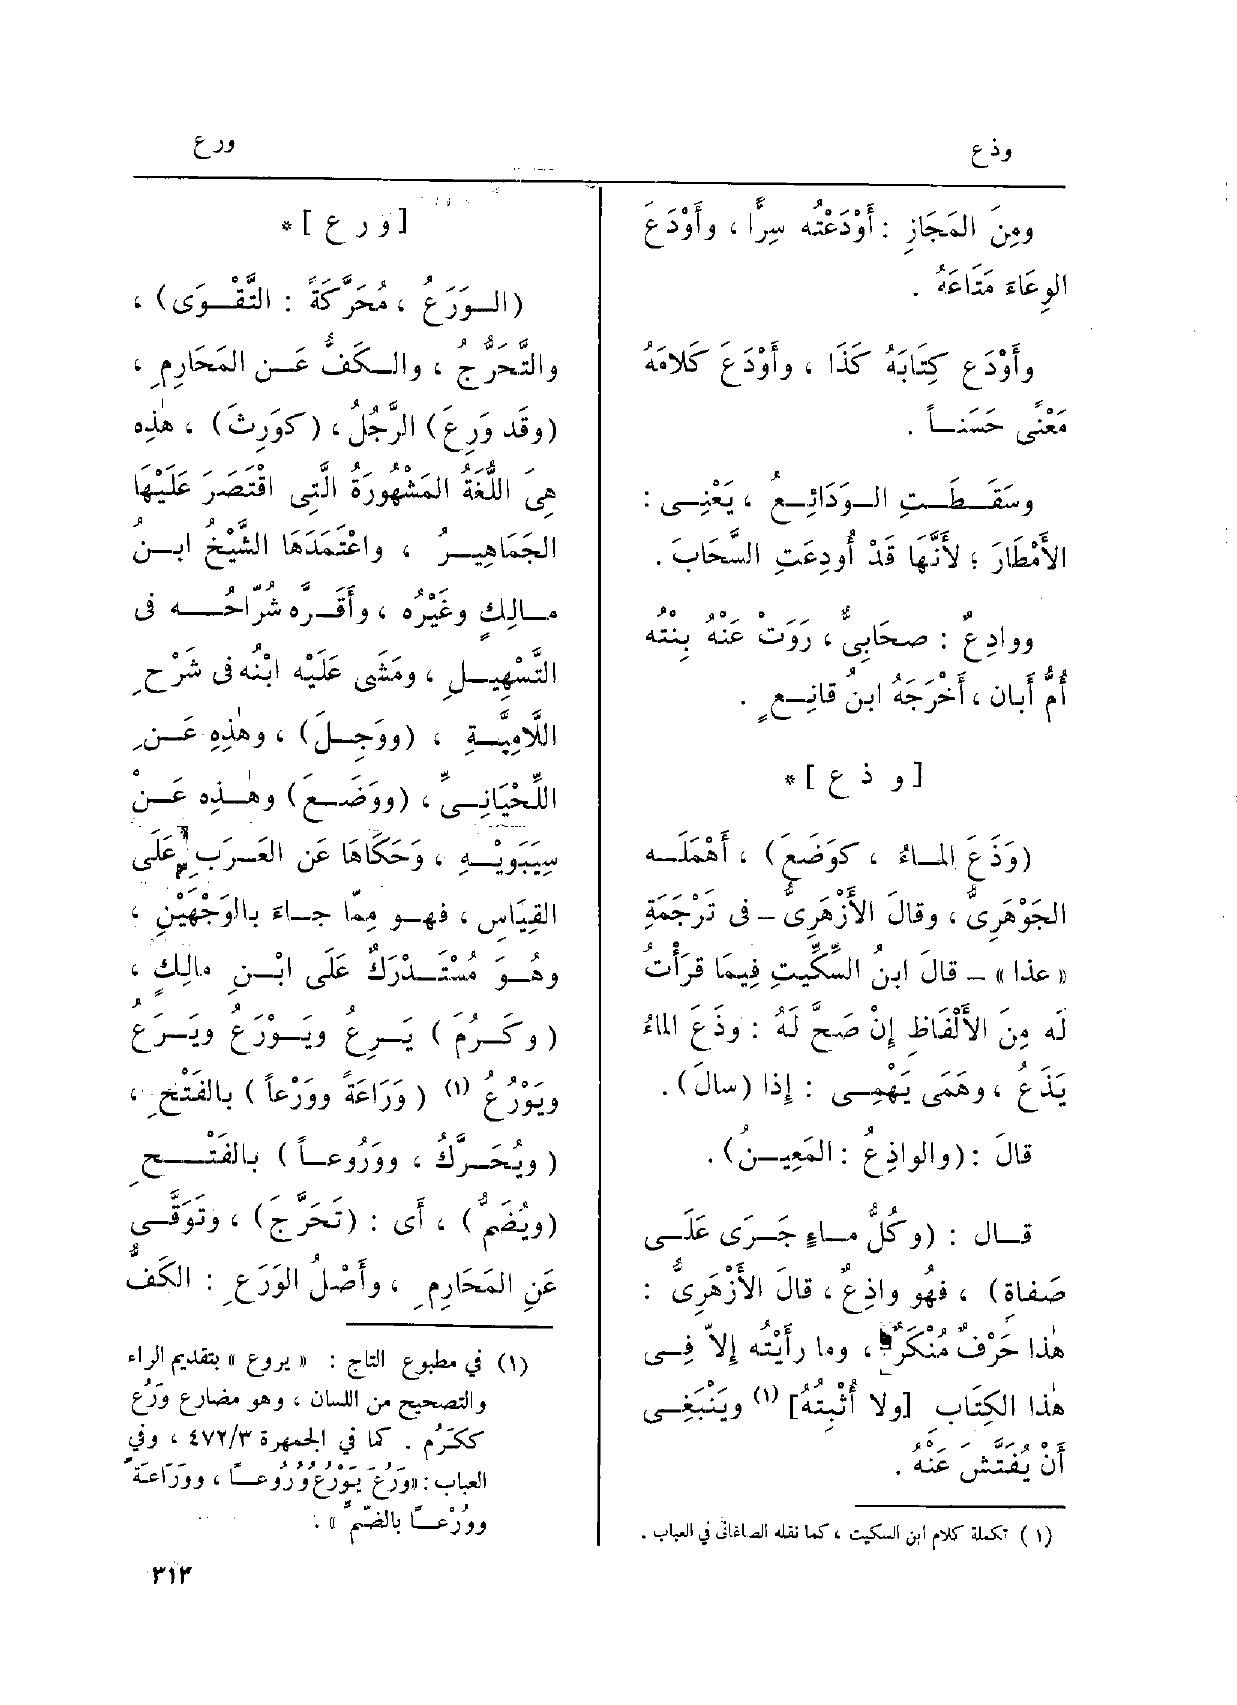 وذع
ورع
ومِنَ المَجَازِ : أَوْدَعْتُه سِرًّا ، وأَوْدَعَ
الوِعَاءَ مَتَاعَهُ .
وأَوْدَع كِتَابَهُ كَذَا ، وأَوْدَعَ كَلاَمَهُ
مَعْنًى حَسَنـاً .
وسَقَـطَـتِ الـوَدَائِـعُ ، يَعْنِـى :
الأَمْطَارَ ؛ لأَنَّهَا قَدْ أُودِعَتِ السَّحَابَ .
ووادِعٌ : صحَابِىٌّ ، رَوَتْ عَنْهُ بِنْتُه
أُمُّ أَبان ، أَخْرَجَهُ ابنُ قانِـعٍ .
[ و ذ ع ] *
(وَذَع المـاءُ ، كوَضَعَ) ، أَهْمَلَـه
الجَوْهَرِىُّ ، وقالَ الأَزْهَرِىُّ - فى تَرْجَمَةِ
« عذا » - قالَ ابنُ السِّكِّيتِ فِيمَا قرَأْتُ
لَه مِنَ الأَلْفَاظِ إِنْ صَحَّ لَهُ : وذَعَ الماءُ
يَذَعُ ، وهَمَى يَهْمِـى : إِذا (سالَ) .
قالَ : (والواذِعُ : المَعِيـنُ) .
قـال : (وكُلُّ مـاءٍ جَـرَى عَلَـى
صَفاة) ، فهُو واذِعٌ ، قالَ الأَزْهَرِىُّ :
هٰذا حَرْفٌ مُنْكَرٌ ، وما رأَيْتُه إِلاّ فِـى
هٰذا الكِتَابِ [ولا أُثْبِتُهُ] (١) ويَنْبَغِـى
أَنْ يُفَتَّشَ عَنْهُ .
(١) تكملة كلام ابن السكيت ، كما نقله الصاغانى في العباب .
[ و ر ع ] *
(الـوَرَعُ ، مُحَرَّكَةً : التَّقْـوَى) ،
والتَّحَرُّج ، والـكَفُّ عَـن المَحَارِمِ ،
(وقَد وَرِعَ) الرَّجُلُ ، (كوَرِثَ) ، هٰذِه
هِىَ اللُّغَةُ المَشْهُورَةُ الَّتِى اقْتَصَرَ عَلَيْهَا
الجَمَاهِيـرُ ، واعْتَمَدَهَا الشَّيْخُ ابـنُ
مـالِكٍ وغَيْرُه ، وأَقَـرَّه شُرَّاحُـه فى
التَّسْهِيـلِ ، ومَشَى عَلَيْه ابْنُه فى شَرْحِ
اللَّامِيَّـةِ ، (ووَجِـلَ) ، وهٰذِهِ عَـنِ
اللِّحْيَانِـىِّ ، (ووَضَـعَ) وهٰـذِه عَـنْ
سِيبَوَيْـهِ ، وَحَكَاهَا عَن العَـرَبِ عَلَى
القِيَاسِ ، فهـو مِمّا جـاءَ بالوَجْهَيْنِ ،
وهُـوَ مُسْتَـدْرَكٌ عَلَى ابْـنِ مالِكٍ ،
( وكَـرُمَ ) يَـرِعُ ويَـوْرَعُ ويَـرَعُ
ويَوْرُعُ (١) ( وَرَاعَةً ووَرْعاً ) بالفَتْحِ ،
( ويُحَـرَّكُ ، ووَرُوعـاً ) بالفَتْـحِ
(ويُضَمُّ) ، أَى : (تَحَرَّج) ، وتَوَقَّـى
عَنِ المَحَارِمِ ، وأَصْلُ الوَرَعِ : الكَفُّ
(١) في مطبوع التاج : « يروع » بتقديم الراء
والتصحيح من اللسان ، وهو مضارع وَرُع
ككَرُم . كما في الجمهرة ٤٧٢/٣ ، وفي
العباب : «وَرُعَ يَوْرُع وُرُوعـًا ، ووَرَاعَةً
ووُرْعـًا بالضّمّ » .
٣١٣